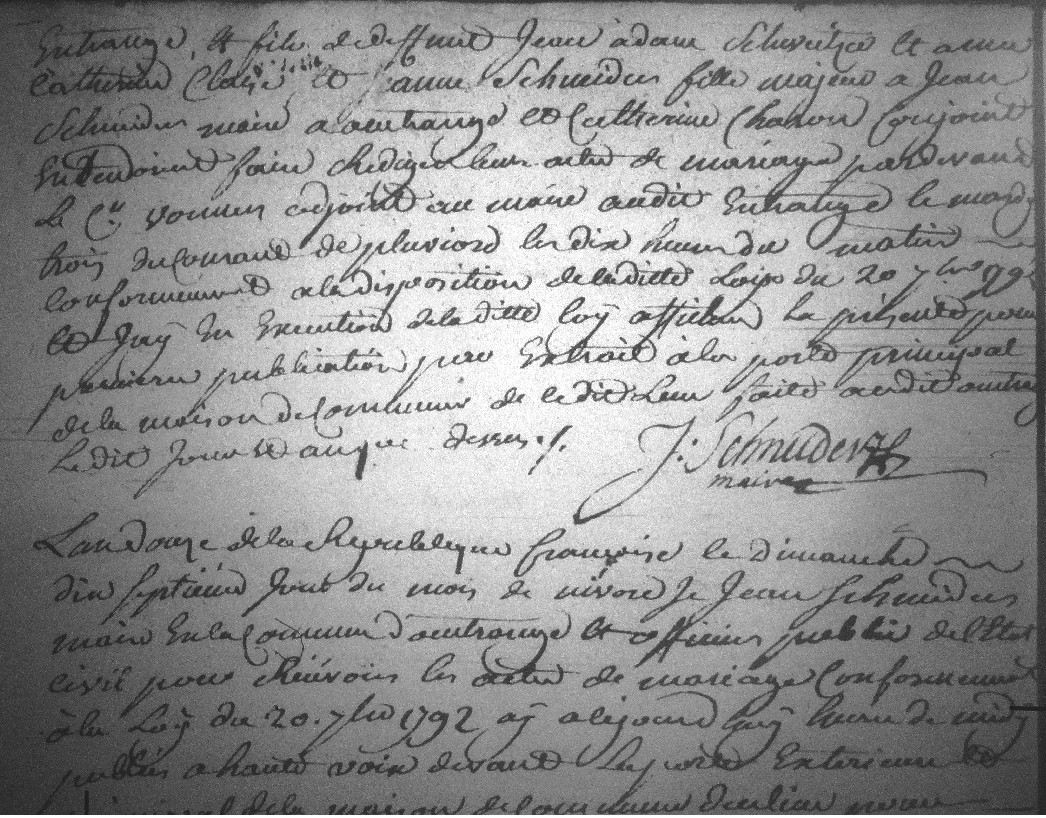 Entrange, et fils de deffunt Jean adam Schveitzer et anne
Catherine et Jeanne Schneider fille majeure a Jean
Schneider maire a oeutrange et Catherine Charon Conjoint
Entendoient faire Rediger leur actes de mariage pardevant
Le C.en vonner adjoint au maire audit Entrange le mardy
trois du Courant de pluviose les dix heures du matin
Conformement a la disposition de la ditte Loix du 20 7bre 92
et J'ay En Execution de la ditte loy afficher la présente pour
premiere publication par Extrait à la porte principal
de la maison de Commune de le dit Lieu faite audit oeutrange
Le dit Jour et an que dessus ./.
J: Schneider
maire
L'an douze de la République françoise le Dimanche
dix septieme Jour du mois de nivose Je Jean Schneider
maire En la Commune d'oeutrange et officier public de l'Etat
civil pour Recevoir les actes de mariage Conformement
à la Loÿ du 20. 7bre 1792 aÿ aujourd'huÿ heure de midy
publier a haute voix devant La porte Exterieure et
principal de la maison de Commune